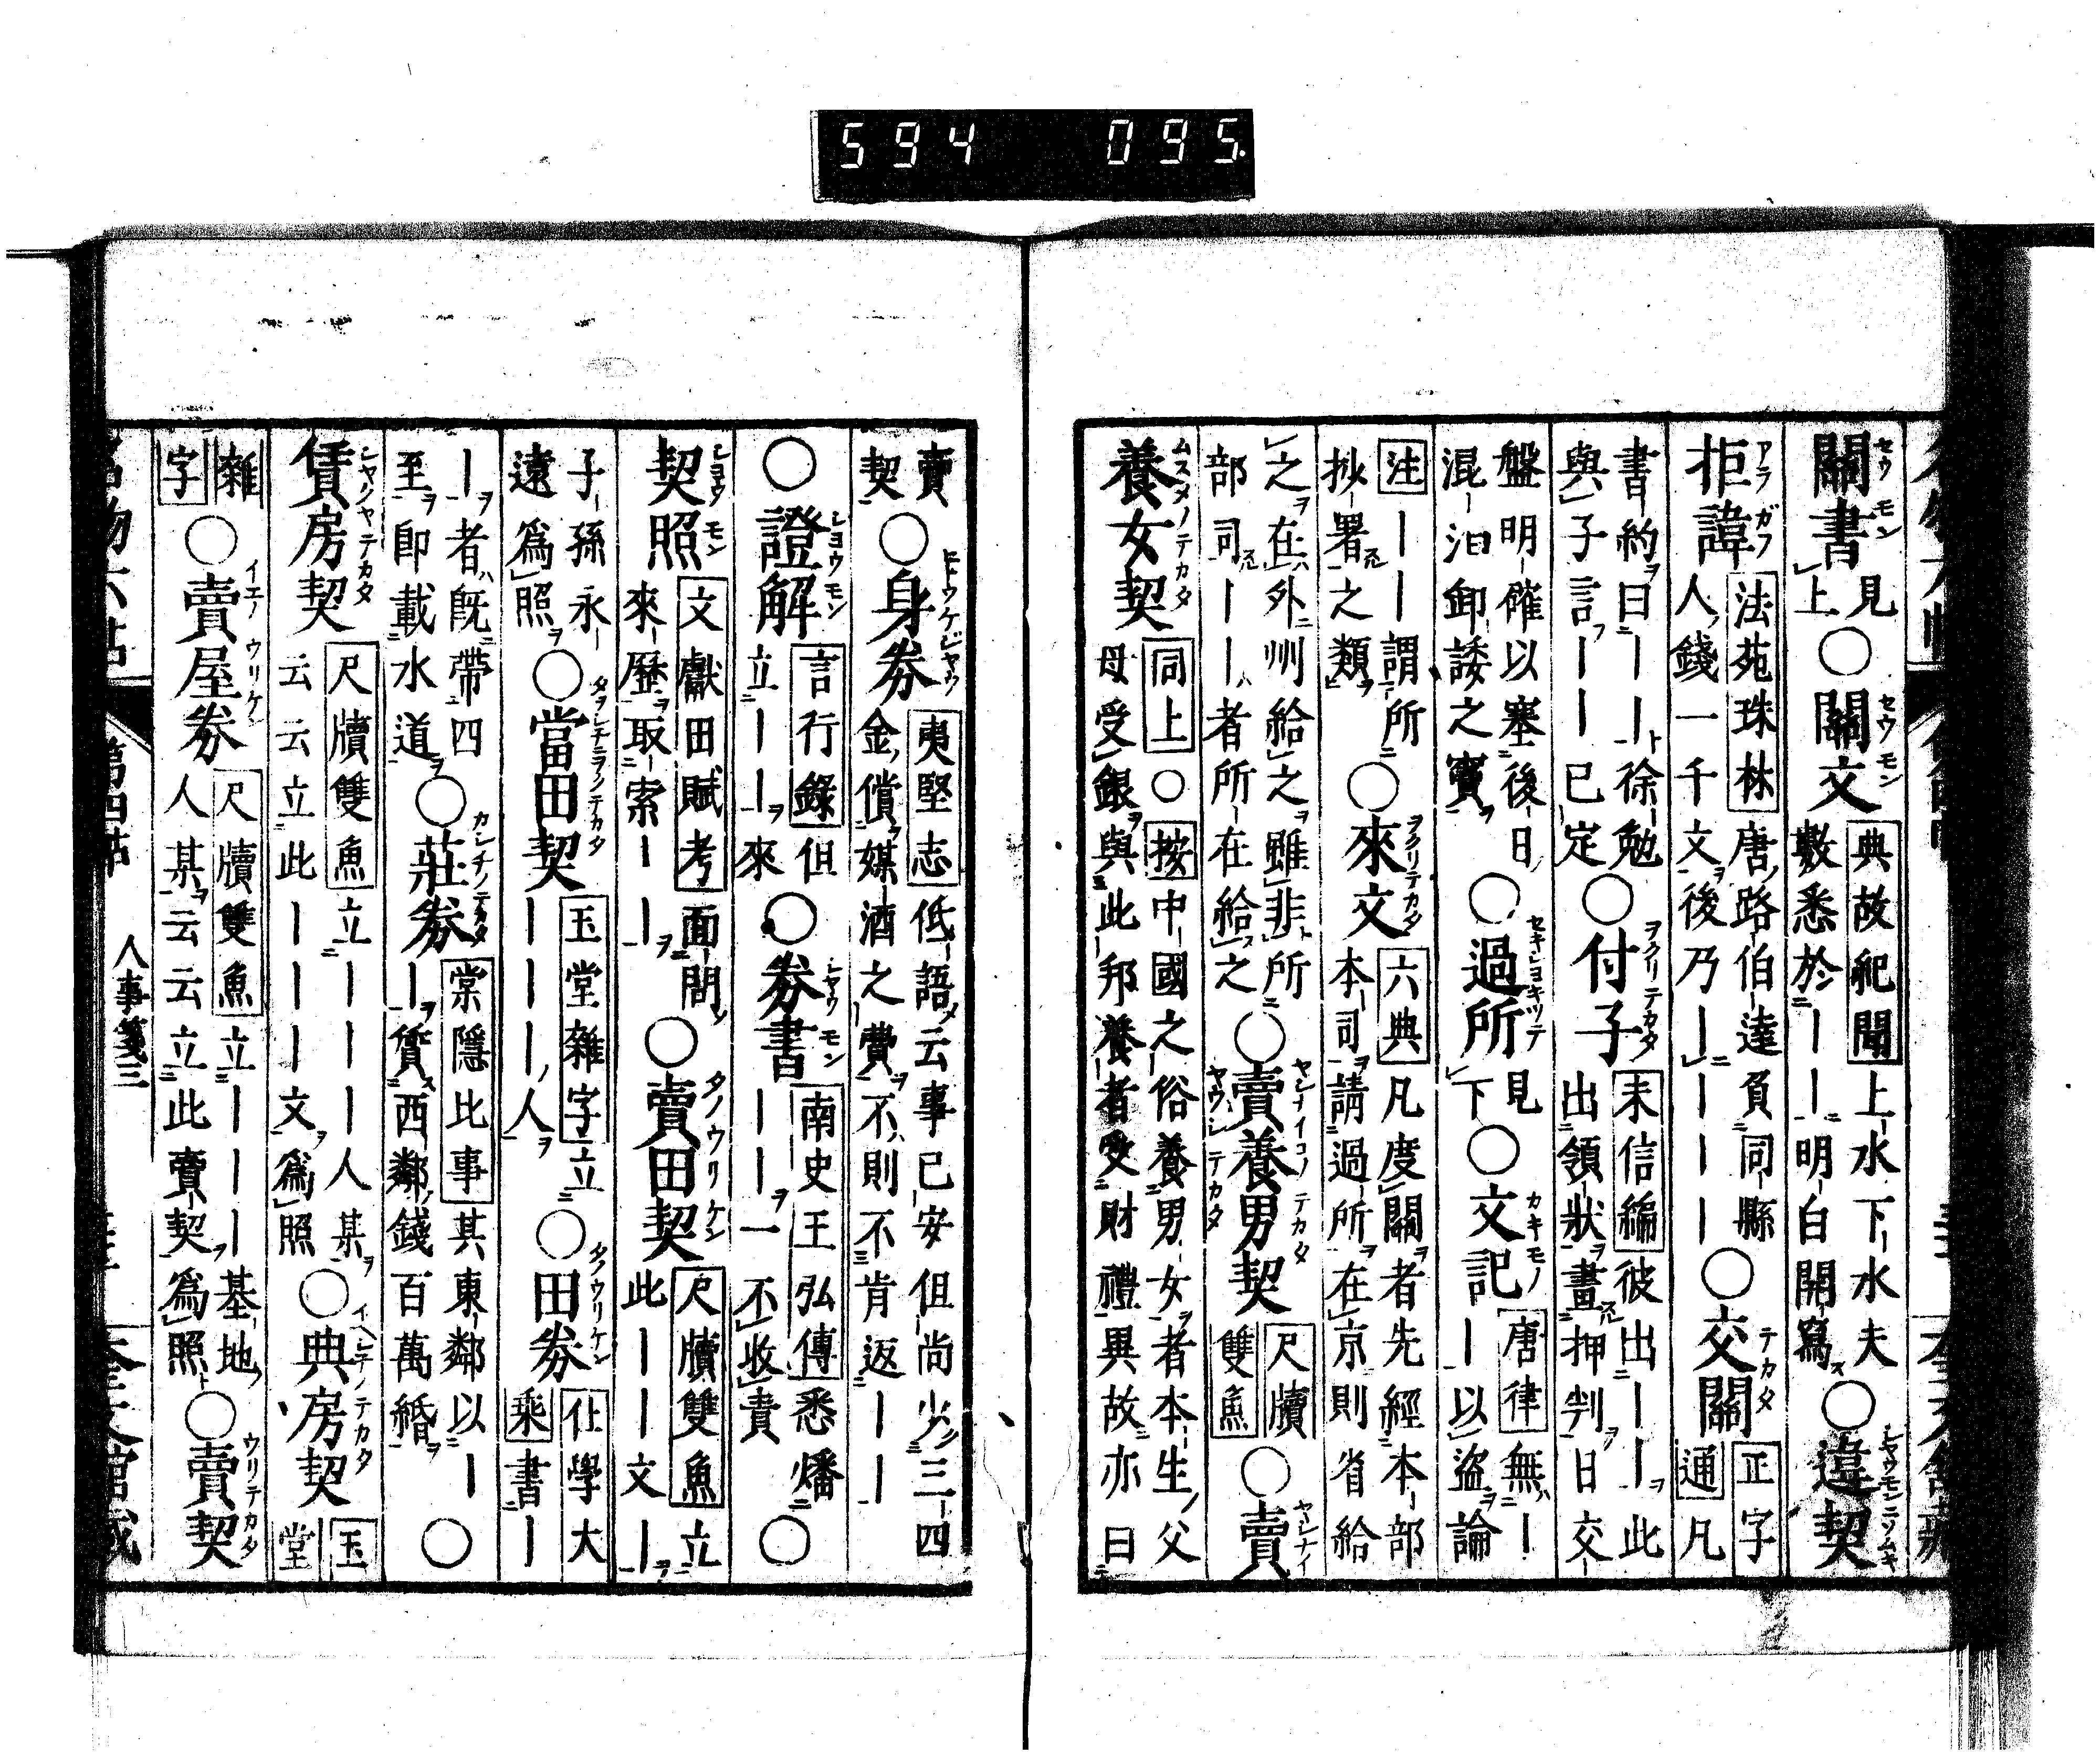 594 095
關書 見上 ○ 關文 典故紀聞 上水下水夫數悉於｜｜明白開寫 ○ 違契
拒諱 法苑珠林 唐路伯達負同縣人錢一千文後乃｜｜｜｜ ○ 交關 正字通 凡
書約曰｜｜徐勉與子言｜｜已定 ○ 付子 耒信編 彼出｜｜此出領狀畫押判日交
盤明催以塞後日混汨卸諉之竇 ○ 過所 見下 ○ 文記 唐律 無｜｜以盜論
注 ｜｜謂所抄署之類 ○ 來文 六典 凡度關者先經本部本司請過所在京則省給
之在外州給之雖非所部司｜｜者所在給之 ○ 賣養男契 尺牘雙魚 ○ 賣
養女契 同上 ○ 按 中國之俗養男女者本生父母受銀與此邦養者受財禮異故亦曰
賣契 ○ 身券 夷堅志 低語云事已安但尚少三四金償媒酒之費不則不肯返｜｜
○ 證解 言行錄 但立｜｜來 ○ 券書 南史王弘傳 悉燔｜｜一不收責 ○
契照 文獻田賦考 面問來歷取索｜｜ ○ 賣田契 尺牘雙魚 立此｜｜文｜
子孫永遠爲照 ○ 當田契 玉堂雜字 立｜｜｜人 ○ 田券 仕學大乘 書｜
｜者旣帶四至卽載水道 ○ 莊券 棠隱比事 其東鄰以｜｜貸西鄰錢百萬緡 ○
賃房契 尺牘雙魚 立｜｜｜人某云云立此｜｜｜文爲照 ○ 典房契 玉堂
雜字 ○ 賣屋券 尺牘雙魚 立｜｜｜基地人某云云立此賣契爲照 ○ 賣契
第四帖 人事箋三